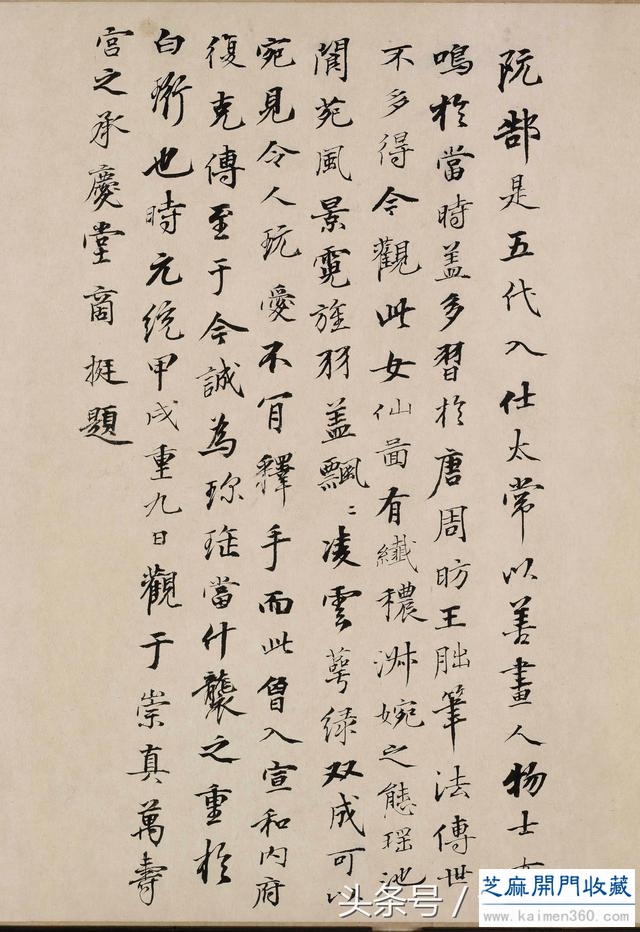 阮郜是五代入仕太常以善畫人物士女
鳴於當時盖多習於唐周昉王朏筆法傳世
不多得今觀此女仙啚有纖穠淑婉之態瑶池
閬苑風景霓旌羽盖飄〻凌雲萼緑双成可以
宛見令人玩愛不肎釋手而此曾入宣和内府
復克傳至于今誠為珎瑶當什襲之重於
白珩也時元統甲戌重九日觀于崇真萬壽
宫之承慶堂商挺題
头条号 /
芝麻開門收藏
www.kaimen360.com